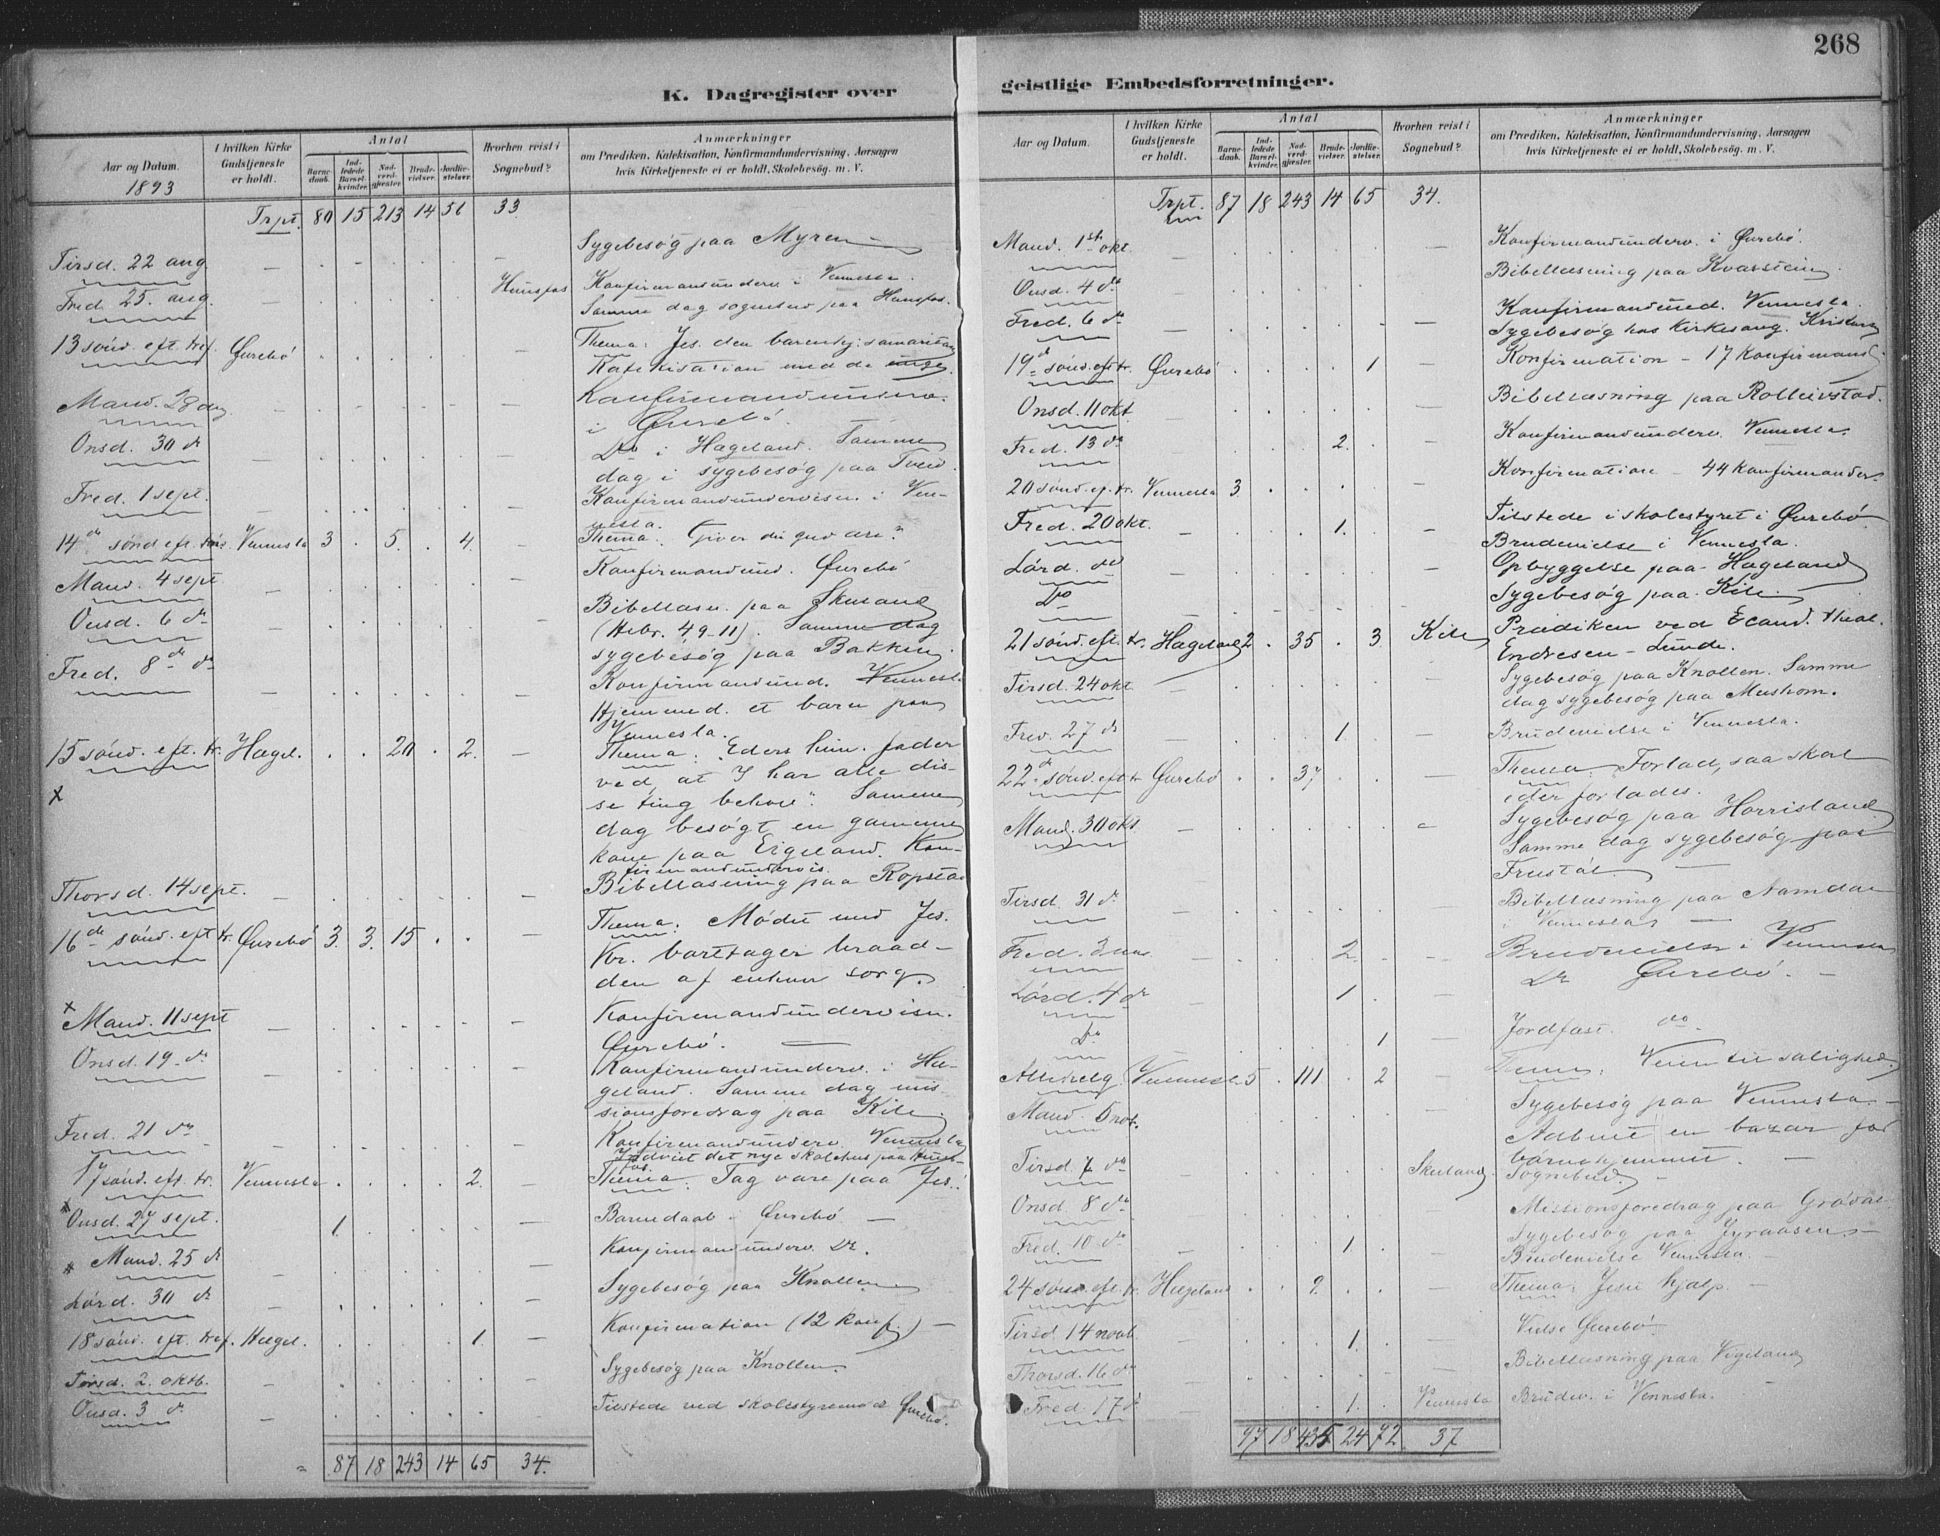 268
K. Dagregister over
geistlige Embedsforretninger.
Aar og Datum.
1893
I hvilken Kirke Gudstjeneste er holdt.
Antal
Barnedaab.
Indledede Barselkvinder.
Nadverdgjæster.
Brudevielser.
Jordfæstelser.
Hvorhen reist i Sognebud?
Anmærkninger
om Prædiken, Katekisation, Konfirmandundervisning, Aarsagen
hvis Kirketjeneste ei er holdt, Skolebesøg. m. V.
Trpt. 80 15 213 14 56 33
Tirsd. 22 aug. Sygebesøg paa Myren
Fred. 25. aug. Hunsfos Konfirmandunderv. i Vennesla.
Samme dag sognebud paa Hunsfos.
13 sønd. eft. tref. Øvrebø Thema: Jes. den barmhj. samaritan
Katekisation med de unge.
Mand. 28 aug Konfirmandunderv.
i Øvrebø.
Onsd. 30 d. Do i Hægeland. Samme
dag i sygebesøg paa Tveid.
Fred. 1 sept. Konfirmandundervisn. i Ven-
nesla.
14de sønd eft. tr. Vennesla 3 5. 4. Thema: Giver du gud ære"
Mand. 4 sept Konfirmandund. Øvrebø
Onsd. 6 d. Bibellæsn. paa Skuland
(Hebr. 4 9-11). Samme dag
sygebesøg paa Bakken.
Fred. 8de d. Konfirmandund. Vennesla
Hjemmed. et barn paa
Vennesla.
15 sønd. eft. tr. Hægel. 20 2. Thema: "Eders him. fader
x ved, at I har alle dis-
se ting behov". Samme
dag besøgt en gammel
kone paa Eigeland. Kon-
firmandundervis.
Thorsd. 14 sept. Bibellæsning paa Ropstad
16de sønd. eft tr. Øvrebø 3. 3. 15 Thema: Mødet med Jes.
Kr. borttager braad-
den af enhver sorg.
x Mand. 11 sept Konfirmandundervisn.
Øvrebø.
Onsd. 19 d. Konfirmandunderv. i Hæ-
geland. Samme dag mis-
sionsforedrag paa Kile.
Fred. 21 d. Konfirmandunderv. Vennesla
Indviet det nye skolehus paa Huns-
fos.
17 sønd. eft. tr. Vennesla 2. Thema: Tag vare paa Jes.
x Onsd. 27 sept. 1. Barnedaab - Øvrebø
x Mand. 25 d. Konfirmandunderv. Do.
Lørd. 30 d. Sygebesøg paa Knollen
18 sønd. eft. tref. Hægel. 1. Konfirmation (12 konf.)
Tirsd. 2. oktb. Sygebesøg paa Knollen
Onsd. 3 d. Tilstede ved skolestyremøde Øvrebø.
87 18 243 14 65 34.
Aar og Datum.
I hvilken Kirke Gudstjeneste er holdt.
Antal
Barnedaab.
Indledede Barselkvinder.
Nadverdgjæster.
Brudevielser.
Jordfæstelser.
Hvorhen reist i Sognebud?
Anmærkninger
om Prædiken, Katekisation, Konfirmandundervisning, Aarsagen
hvis Kirketjeneste ei er holdt, Skolebesøg. m. V.
Trpt. 87 18 243 14 65 34.
Mand. 1st okt. Konfirmandunderv. i Øvrebø.
Onsd. 4 do Bibellæsning paa Kvarstein
Fred. 6 do Konfirmandund. Vennesla.
Sygebesøg hos kirkesang. Kristens
19de sønd. eft tr. Øvrebø 1 Konfirmation - 17 konfirmand.
Onsd. 11 okt Bibellæsning paa Rolleivstad.
Fred. 13 do 2. Konfirmandunderv. Vennesla.
20 sønd. ef. tr. Vennesla 3. Konfirmation - 44 konfirmander.
Fred. 20 okt. 1. Tilstede i skolestyret i Øvrebø
Brudevielse i Vennesla.
Lørd. do Opbyggelse paa Hægeland
Do Sygebesøg paa Kile.
21 sønd. eft. tr. Hægeland 2 35 3 Kile Prædiken ved Cand. theol.
Endresen-Lunde.
Tirsd. 24 okt Sygebesøg paa Knollen. Samme
dag sygebesøg paa Mushom.
Fred. 27 d. 1. Brudevielse i Vennesla.
22de sønd. eft tr Øvrebø 37 Thema: Forlad, saa skal
eder forlades.
Mand. 30 okt Sygebesøg paa Horrisland
Samme dag sygebesøg paa
Frustøl.
Tirsd. 31 d. Bibellæsning paa Aamdal
i Vennesla
Fred. 3 nov 2. Brudevielse i Vennesla
Lørd. 4 d. 1 Do Øvrebø.
Do 1 Jordfæst. do.
Allehelg. Vennesla 5 111 2 Thema: Veien til salighed.
Mand. 6 nov. Sygebesøg paa Vennesla.
Aabnet en bazar for
børnehjemmet.
Tirsd. 7 do Skuland. Sognebud.
Onsd. 8 do Missionsforedrag paa Grødal
Sygebesøg paa Jyraasen.
Fred. 10 do 1 Brudevielse Vennesla.
24 sønd. eft. tr. Hægeland 9. Thema: Jesu hjælp
Tirsd 14 novb. 1. Vielse Øvrebø.
Thorsd. 16 do Bibellæsning paa Vigeland
Fred. 17 d. 1. Vennesla Brudev. i Vennesla.
97 18 435 24 72 37